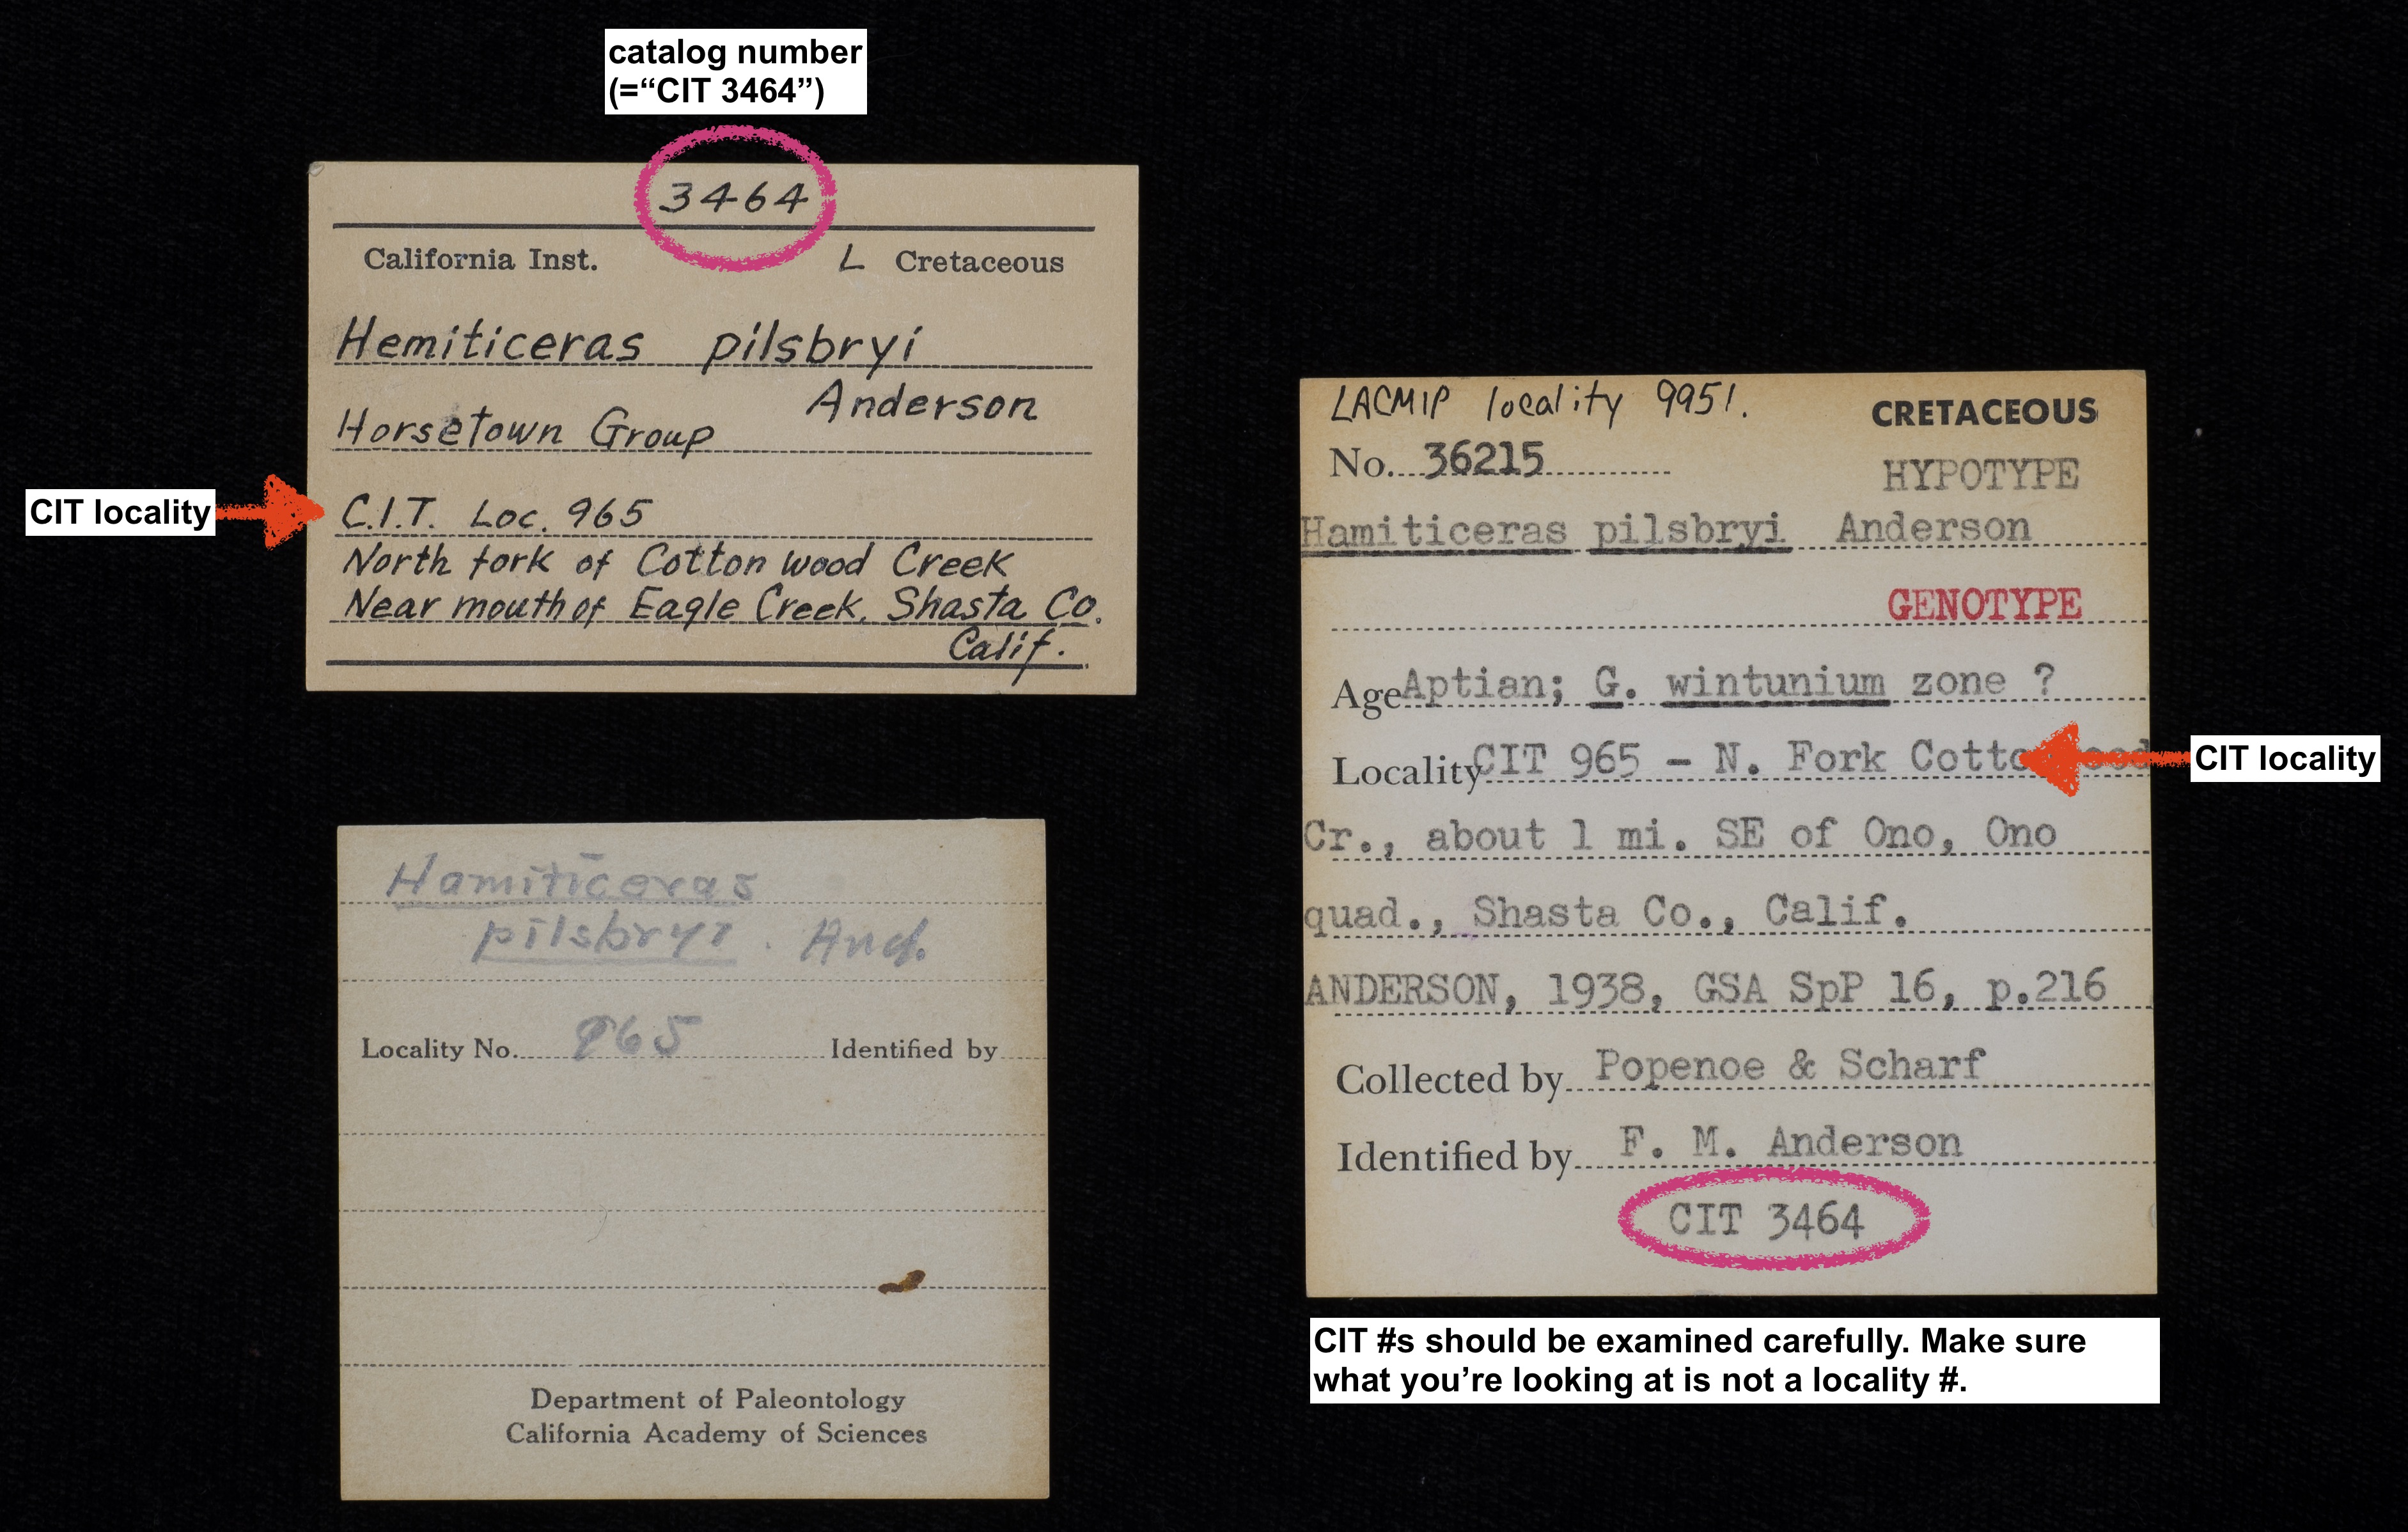 catalog number
(=“CIT 3464”)
3464
California Inst. L Cretaceous
Hemiticeras pilsbryi
Anderson
Horsetown Group
CIT locality
C.I.T. Loc. 965
North fork of Cotton wood Creek
Near mouth of Eagle Creek, Shasta Co.
Calif.
Hamiticeras
pilsbryi. And.
Locality No. 965 Identified by
Department of Paleontology
California Academy of Sciences
LACMIP locality 9951.
CRETACEOUS
No. 36215
HYPOTYPE
Hamiticeras pilsbryi Anderson
GENOTYPE
Age Aptian; G. wintunium zone ?
Locality CIT 965 - N. Fork
CIT locality
Cr., about 1 mi. SE of Ono, Ono
quad., Shasta Co., Calif.
ANDERSON, 1938, GSA SpP 16, p.216
Collected by Popenoe & Scharf
Identified by F. M. Anderson
CIT 3464
CIT #s should be examined carefully. Make sure
what you’re looking at is not a locality #.